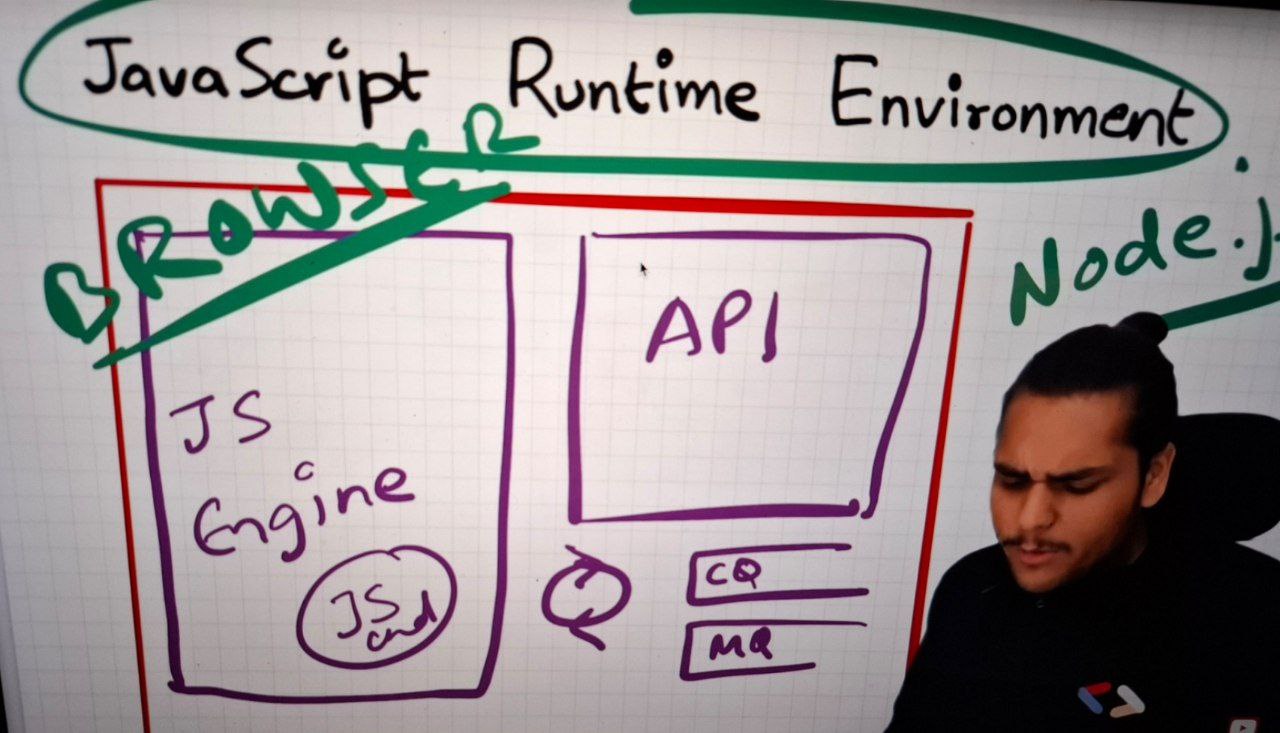 JavaScript Runtime Environment
BROWSER
Node.j
API
JS
Engine
JS
CQ
MQ